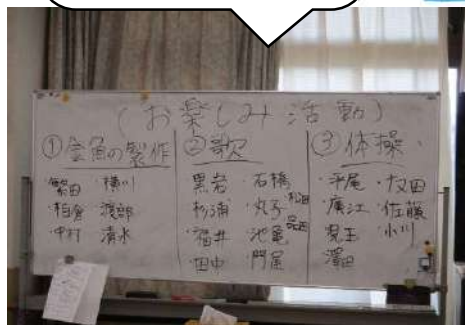 (お楽しみ活動)
①金魚の製作
繁田 ・横川
・柏倉 ・渡部
・中村 清水
②歌
黒岩 ・石橋
杉浦 ・丸子 松田
・福井 池亀 品田
・田中 ・門屋
③体操
・平尾 ・友田
・廣江 ・佐藤
・児玉 ・小川
・濱田